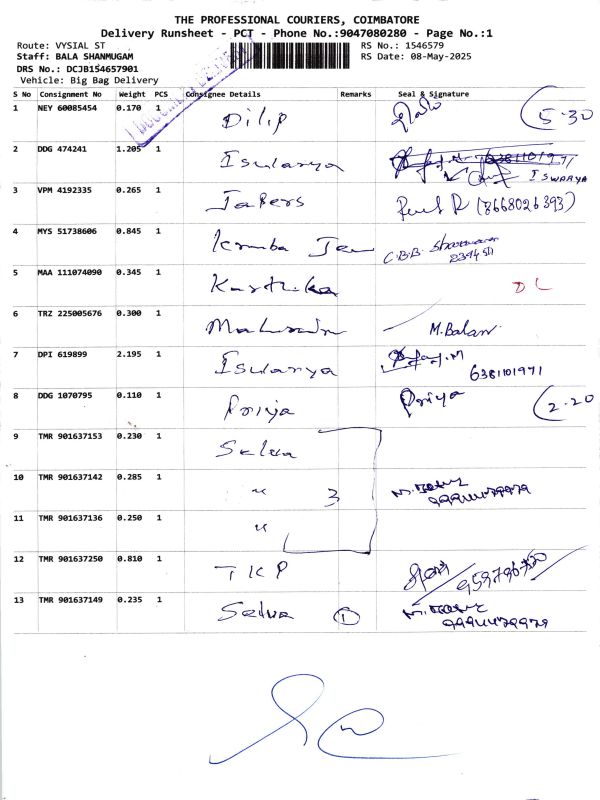 THE PROFESSIONAL COURIERS, COIMBATORE
Delivery Runsheet - PCT - Phone No.:9047080280 - Page No.:1
Route: VYSIAL ST RS No.: 1546579
Staff: BALA SHANMUGAM RS Date: 08-May-2025
DRS No.: DCJB154657901
Vehicle: Big Bag Delivery
S No Consignment No Weight PCS Consignee Details Remarks Seal & Signature
1 NEY 60085454 0.170 1 Dilip 5-30
2 DDG 474241 1.205 1 Isularya ISWARYA
3 VPM 4192335 0.265 1 Jakers (8668026393)
4 MYS 51738606 0.845 1 C.B.B.
5 MAA 111074090 0.345 1 Karthika DL
6 TRZ 225005676 0.300 1 M.Balan
7 DPI 619899 2.195 1 Isularya 6381101971
8 DDG 1070795 0.110 1 Priya Priya 2-20
9 TMR 901637153 0.230 1 Selva
10 TMR 901637142 0.285 1 " 3
11 TMR 901637136 0.250 1 "
12 TMR 901637250 0.810 1 TKP
13 TMR 901637149 0.235 1 Selva 1